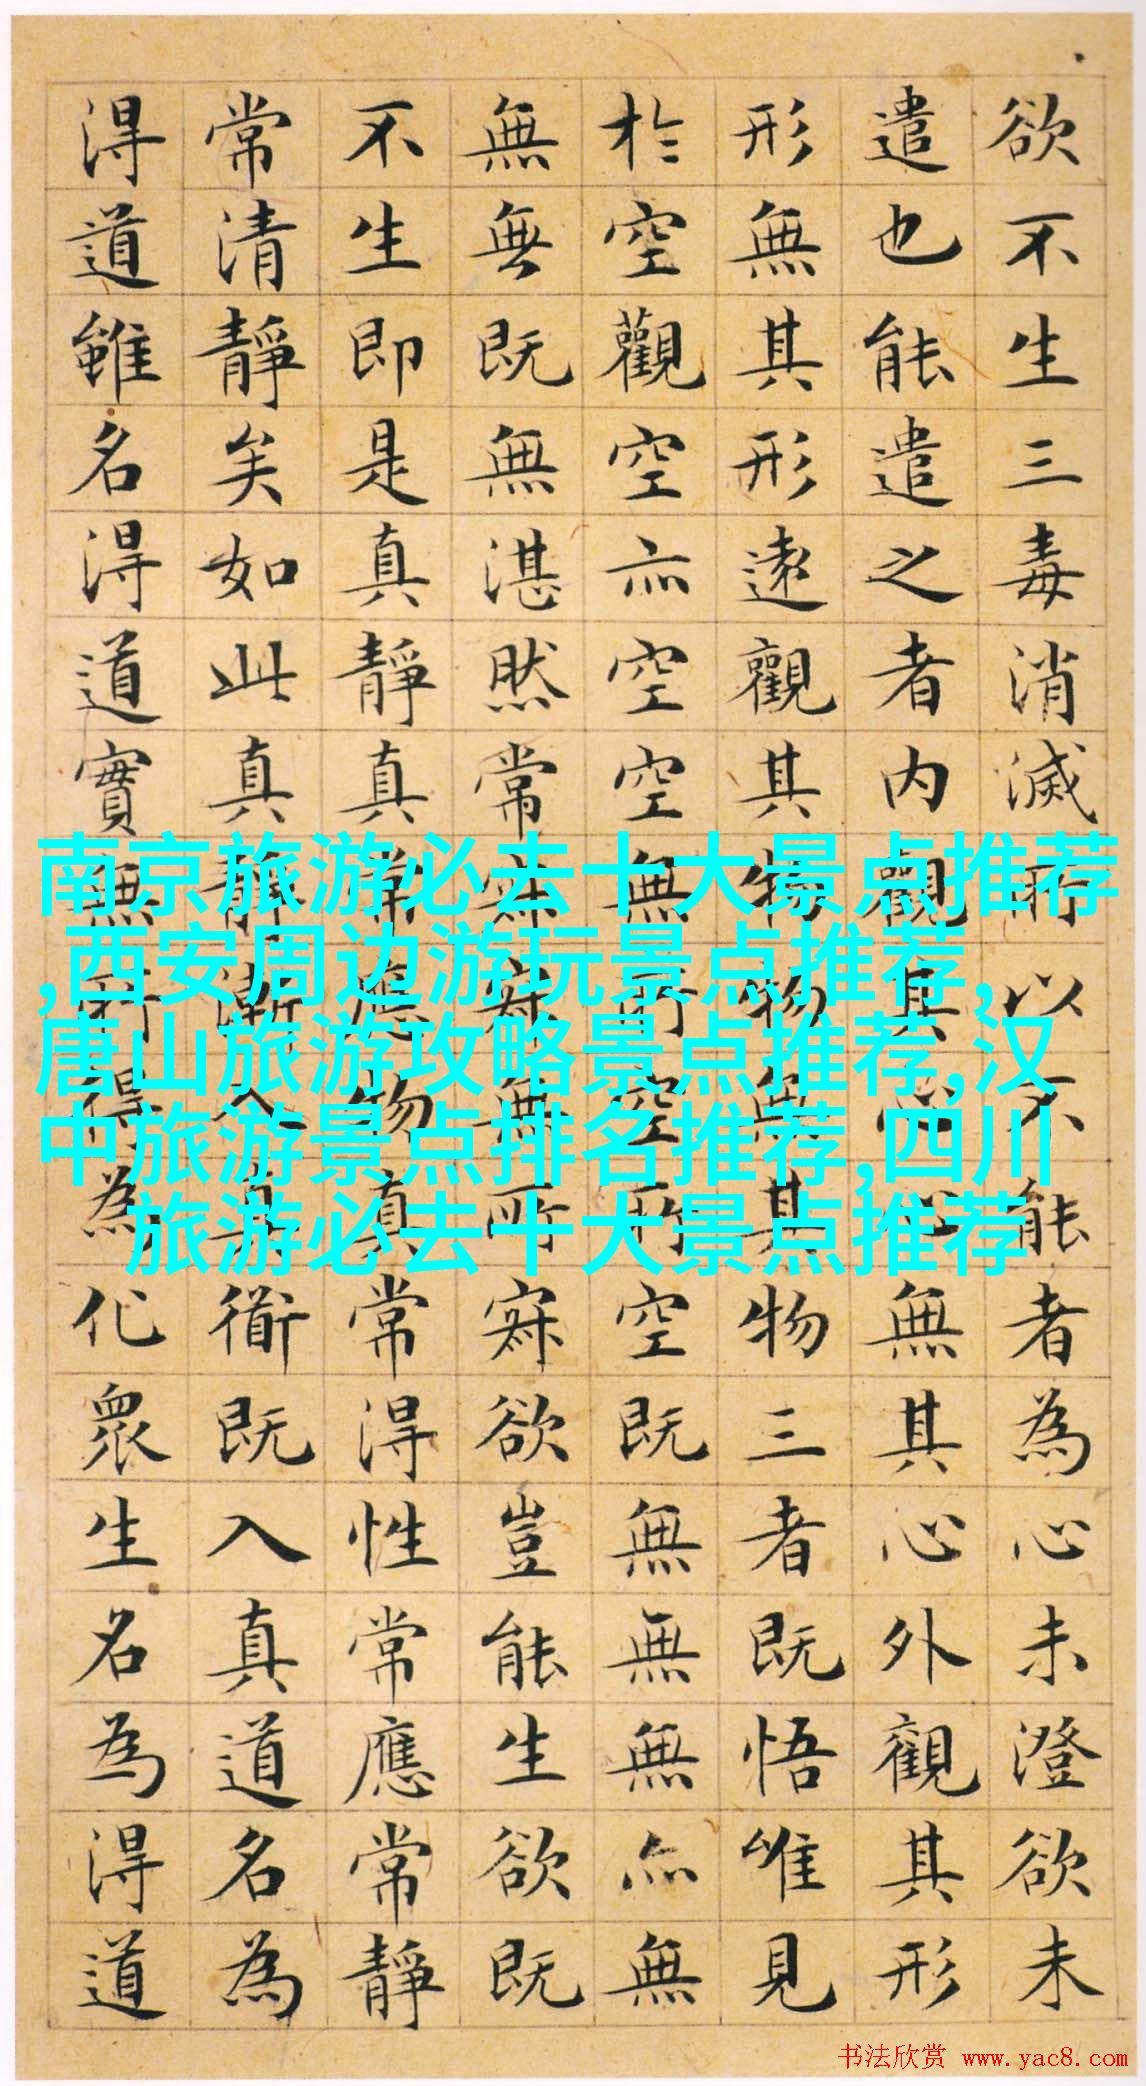 欲不生三毒消滅所以不能者為心未澄欲未
遣也能遣之者内觀其心心無其心外觀其形
形無其形遠觀其物物無其物三者既悟唯見
於空觀空亦空空無所空所空既無無無亦無
無無既無湛然常寂寂無所寂欲豈能生欲既
不生即是真靜真常應物真常得性常應常靜
常清靜矣如此真靜漸入真道既入真道名為
得道雖名得道實無所得為化眾生名為得道
南京旅游必去十大景点推荐
,西安周边游玩景点推荐,
唐山旅游攻略景点推荐,汉
中旅游景点排名推荐,四川
旅游必去十大景点推荐
书法欣赏 www.yac8.com